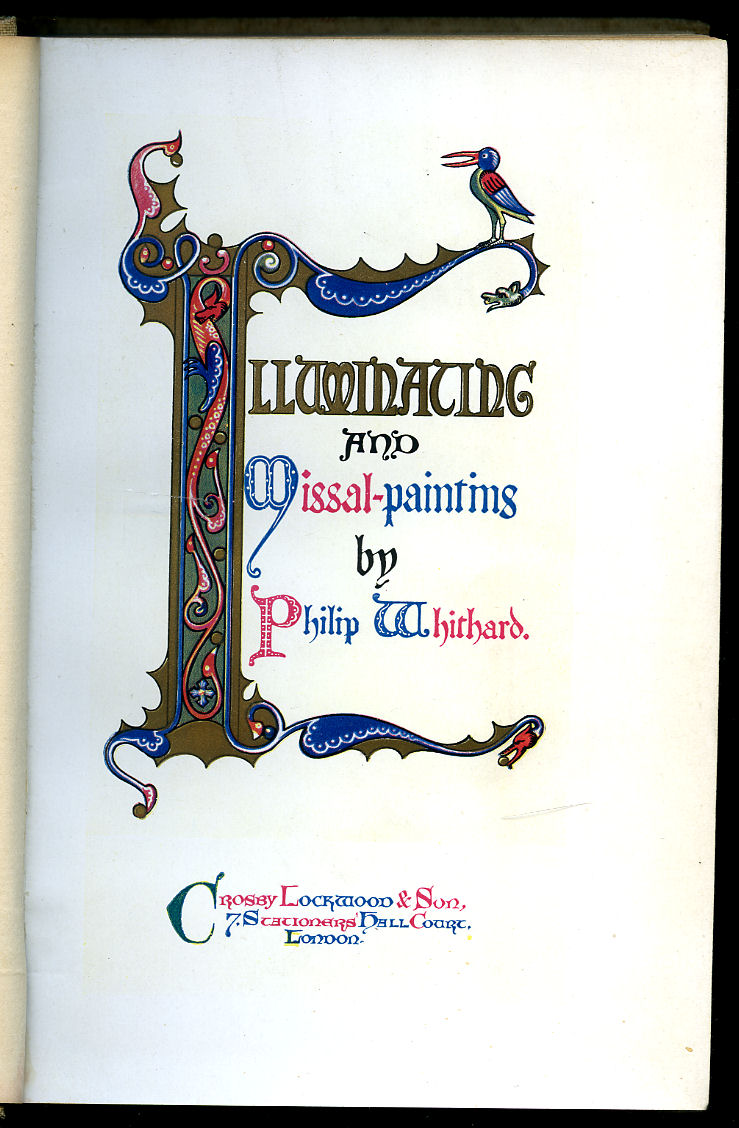 ILLUMINATING
AND
Missal-painting
by
Philip Whithard.
Crosby Lockwood & Son,
7. Stationers' Hall Court.
London.